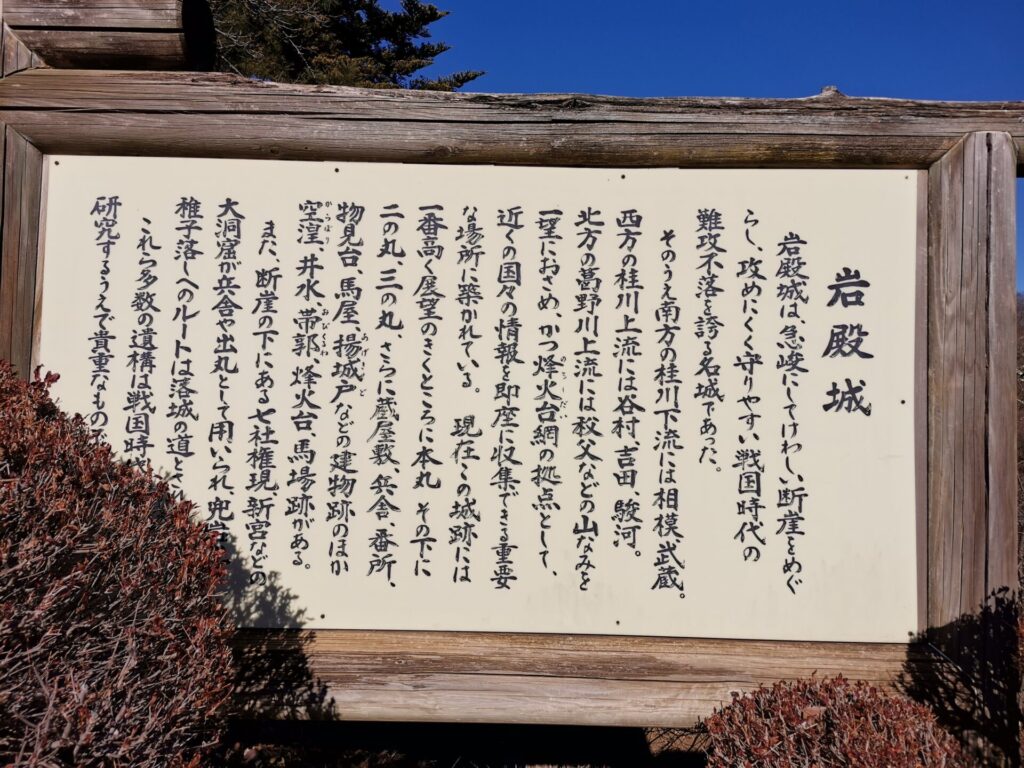 岩殿城
岩殿城は、急峻にしてけわしい断崖をめぐ
らし、攻めにくく守りやすい戦国時代の
難攻不落を誇る名城であった。
そのうえ南方の桂川下流には相模、武蔵。
西方の桂川上流には谷村、吉田、駿河。
北方の葛野川上流には秩父などの山なみを
のろしだい
一望におさめ、かつ烽火台網の拠点として、
近くの国々の情報を即座に収集できる重要
な場所に築かれている。 現在この城跡には
一番高く展望のきくところに本丸 その下に
二の丸、三の丸、さらに蔵屋敷、兵舎、番所、
あげきど
物見台、馬屋、揚城戸などの建物跡のほか
からぼり おびくるわ
空湟、井水、帯郭、烽火台、馬場跡がある。
また、断崖の下にある七社権現、新宮などの
大洞窟が兵舎や出丸として用いられ、兜岩
稚子落しへのルートは落城の道とさ
これら多数の遺構は戦国時
研究するうえで貴重なもの